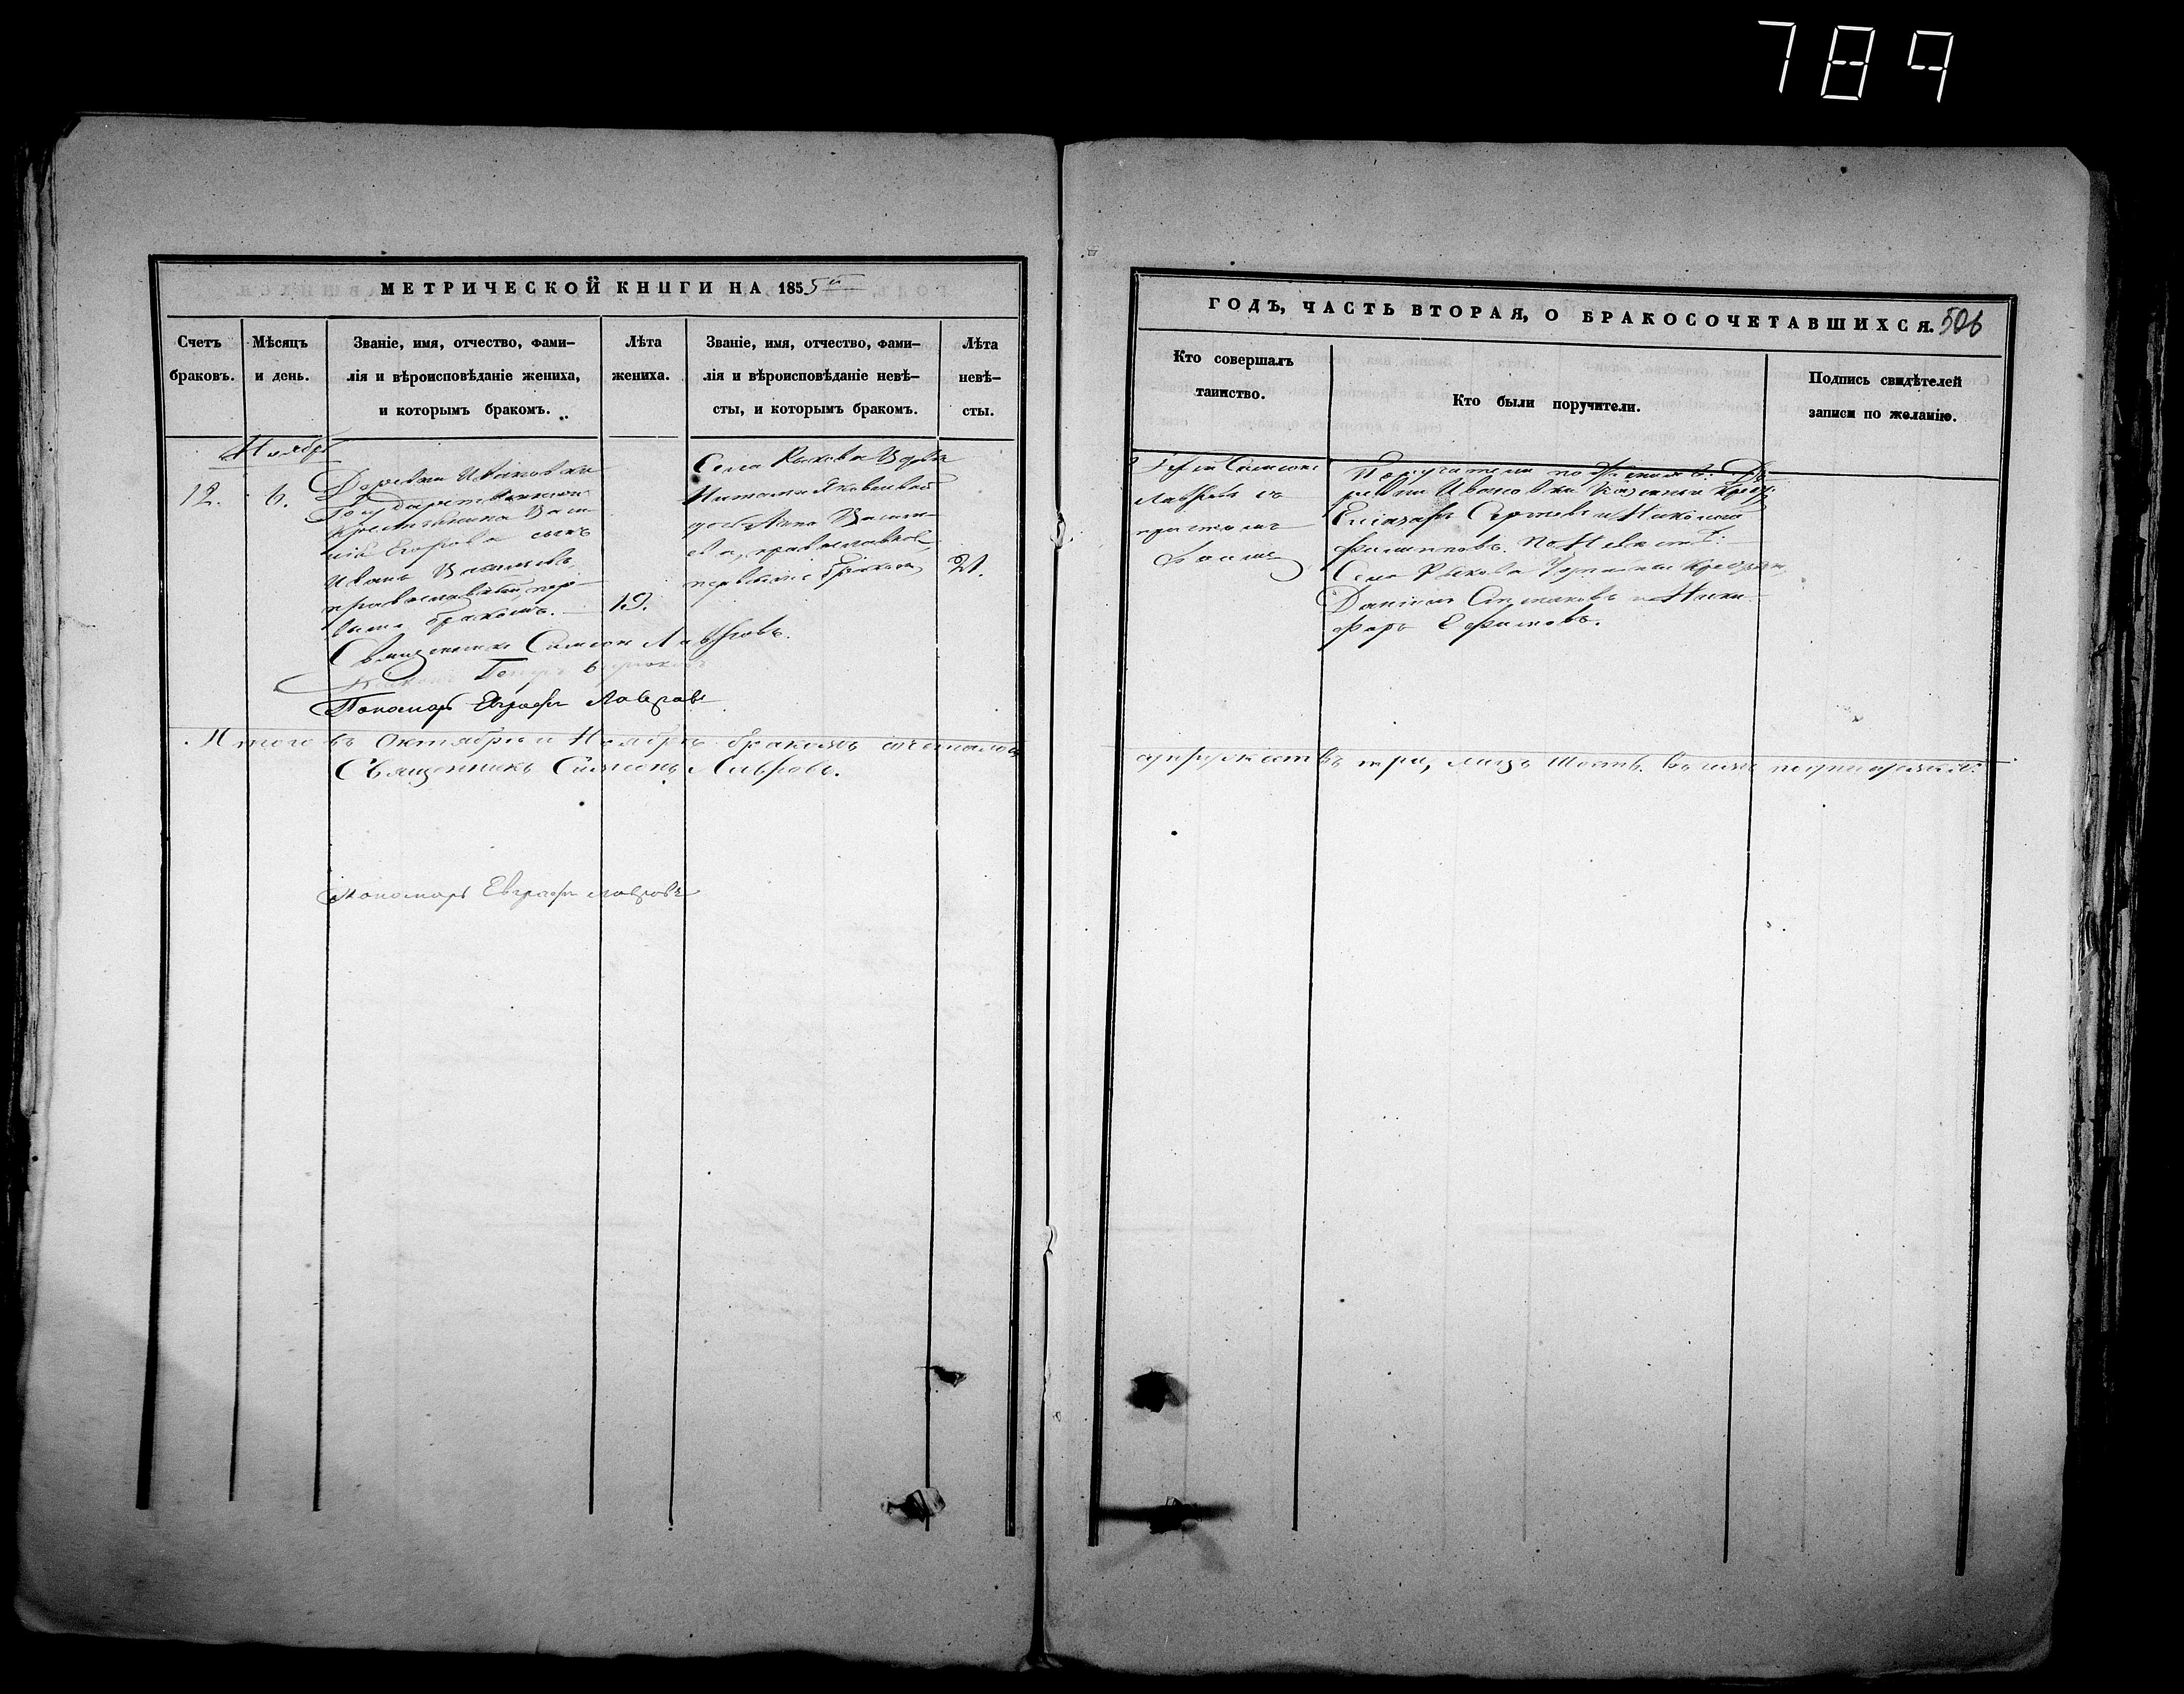 789
МЕТРИЧЕСКОЙ КНИГИ НА 1855й
ГОДЪ, ЧАСТЬ ВТОРАЯ, О БРАКОСОЧЕТАВШИХСЯ. 506
Счетъ браковъ.
Мѣсяцъ и день.
Званіе, имя, отчество, фами-
лія и вѣроисповѣданіе жениха,
и которымъ бракомъ.
Лѣта жениха.
Званіе, имя, отчество, фами-
лія и вѣроисповѣданіе невѣ-
сты, и которымъ бракомъ.
Лѣта невѣ-
сты.
Кто совершалъ
таинство.
Кто были поручители.
Подпись свидѣтелей
записи по желанію.
Ноябрь
12.
6.
Деревни Ивановки
Государственнаго
крестьянина Васи-
лія Егорова сынъ
Иванъ Васильевъ,
православный, пер-
вымъ бракомъ.
19.
Села Рыкова
православнаго
первымъ бракомъ
21.
Симеонъ
Лавровъ съ
причтомъ
Поручители по женихѣ: Де-
ревни Ивановки
Сергѣевъ и Николай
Филиповъ. По невѣстѣ:
Села Рыкова
Даніилъ и Ники-
форъ Ефимовъ.
Священникъ Симеонъ Лавровъ.
Пономарь Евграфъ Лавровъ
Итого въ Октябрѣ и Ноябрѣ бракомъ сочеталось
супружествъ три, лицъ шесть.
Священникъ Симеонъ Лавровъ.
Пономарь Евграфъ Лавровъ